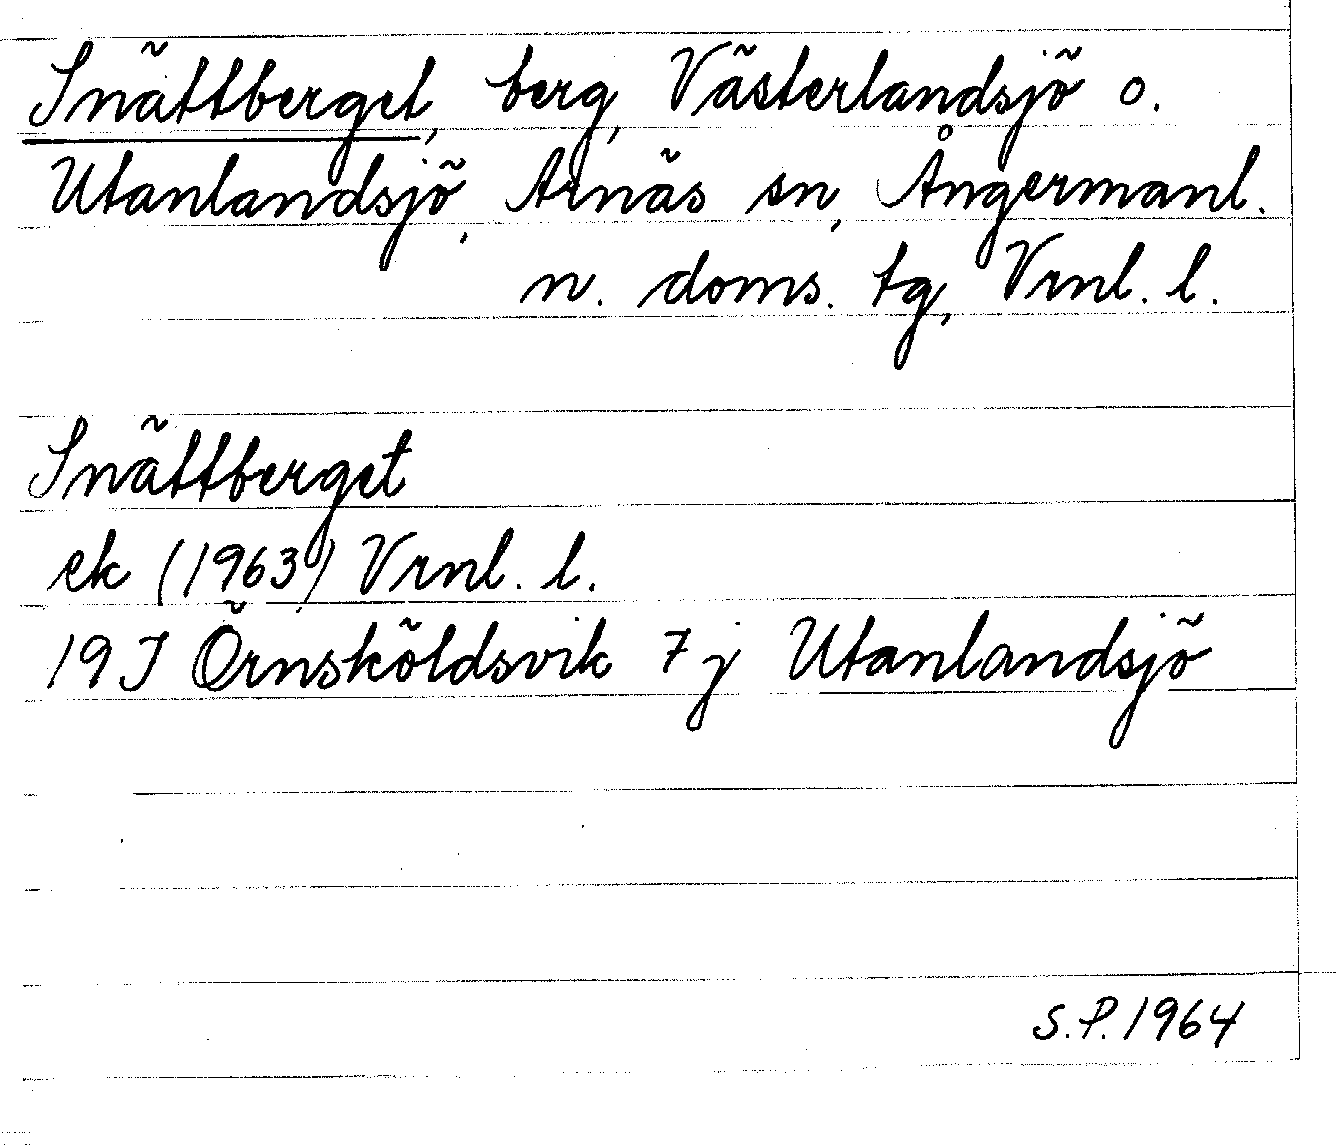 Snättberget, berg, Västerlandsjö o.
Utanlandsjö, Arnäs sn, Ångermanl.
n. doms. tg, Vrnl. l.
Snättberget
ek (1963) Vrnl. l.
19 J Örnsköldsvik 7 j Utanlandsjö
S.P. 1964